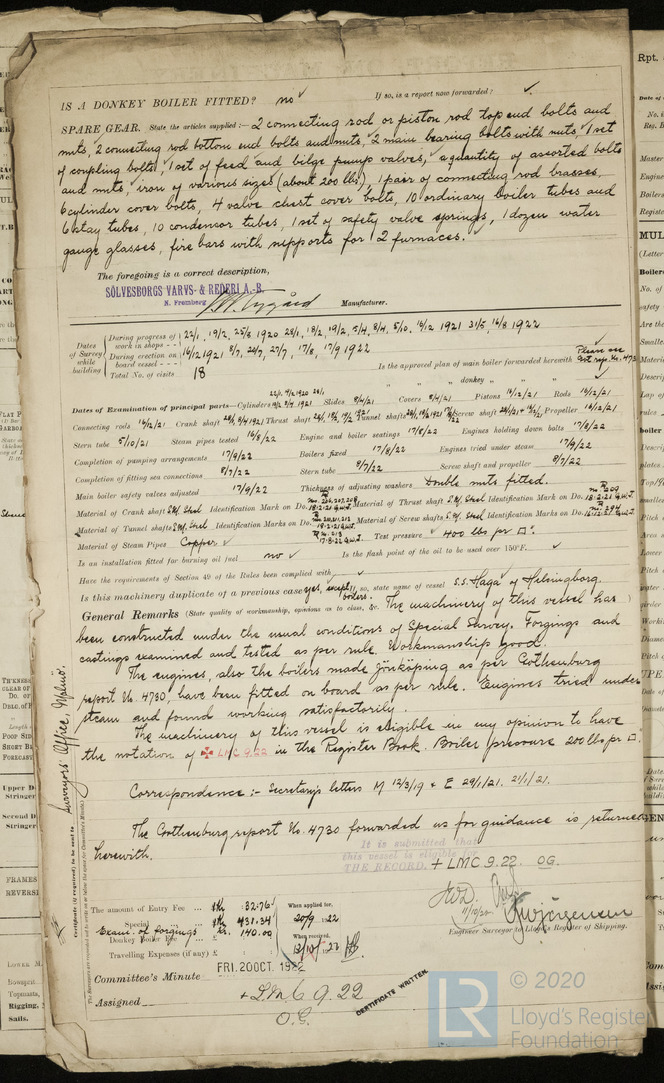 IS A DONKEY BOILER FITTED? no ✓ If so, is a report now forwarded? ✓
SPARE GEAR. State the articles supplied:— 2 connecting rod or piston rod top end bolts and
nuts, 2 connecting rod bottom end bolts and nuts, 2 main bearing bolts with nuts, 1 set
of coupling bolts, 1 set of feed and bilge pump valves, a quantity of assorted bolts
and nuts, iron of various sizes (about 200 lbs), 1 pair of connecting rod brasses,
6 cylinder cover bolts, 4 valve chest cover bolts, 10 ordinary boiler tubes and
6 stay tubes, 10 condensor tubes, 1 set of safety valve springs, 1 dozen water
gauge glasses, fire bars with supports for 2 furnaces.
The foregoing is a correct description,
SÖLVESBORGS VARVS- & REDERI A.-B.
N. Fromberg Manufacturer.
Dates of Survey while building
During progress of work in shops - - 22/1, 19/2, 25/8 1920 28/1, 18/2, 19/2, 5/4, 8/4, 5/10, 16/12 1921 31/5, 16/8 1922
During erection on board vessel - - - 16/12 1921 8/7, 24/7, 27/7, 17/8, 17/9 1922
Total No. of visits 18
Is the approved plan of main boiler forwarded herewith Please see
" " " donkey " " "
Dates of Examination of principal parts—Cylinders Slides 8/4/21 Covers 8/4/21 Pistons 16/12/21 Rods 16/12/21
Connecting rods 16/12/21 Crank shaft Thrust shaft Tunnel shafts Screw shaft Propeller 16/12/21
Stern tube 5/10/21 Steam pipes tested 16/8/22 Engine and boiler seatings 17/8/22 Engines holding down bolts 17/8/22
Completion of pumping arrangements 17/9/22 Boilers fixed 17/8/22 Engines tried under steam 17/9/22
Completion of fitting sea connections 8/7/22 Stern tube 8/7/22 Screw shaft and propeller 8/7/22
Main boiler safety valves adjusted 17/9/22 Thickness of adjusting washers Double nuts fitted.
Material of Crank shaft S.M. Steel Identification Mark on Do. Material of Thrust shaft S.M. Steel Identification Mark on Do.
Material of Tunnel shafts S.M. Steel Identification Marks on Do. Material of Screw shafts S.M. Steel Identification Marks on Do.
Material of Steam Pipes Copper ✓ Test pressure ✓ 400 lbs pr □".
Is an installation fitted for burning oil fuel no ✓ Is the flash point of the oil to be used over 150°F. ✓
Have the requirements of Section 49 of the Rules been complied with ✓
Is this machinery duplicate of a previous case yes, except boilers. If so, state name of vessel S.S. Haga of Helsingborg.
General Remarks (State quality of workmanship, opinions as to class, &c. The machinery of this vessel has
been constructed under the usual conditions of Special Survey. Forgings and
castings examined and tested as per rule. Workmanship good.
The engines, also the boilers made Jönköping as per Gothenburg
report No. 4730, have been fitted on board as per rule. Engines tried under
steam and found working satisfactorily.
The machinery of this vessel is eligible in my opinion to have
the notation of ✠ LMC 9.22 in the Register Book. Boiler pressure 200 lbs pr □".
Correspondence :- Secretary's letters M 12/3/19 & E 29/1/21. 21/1/21.
The Gothenburg report No. 4730 forwarded us for guidance is returned
herewith.
It is submitted that
this vessel is eligible for
THE RECORD. + LMC 9.22. OG.
Certificate (if required) to be sent to Surveyors' Office, Malmö.
The Surveyors are requested not to write on or below the space for Committee's Minute.
The amount of Entry Fee ... 32.76 When applied for,
Special ... 431.34 20/9 1922
Exam. of forgings kr. 140.00
Donkey Boiler Fee ... When received,
Travelling Expenses (if any) £ 13/10 1922
Engineer Surveyor to Lloyd's Register of Shipping.
Committee's Minute FRI. 20 OCT. 1922
Assigned + L.M.C 9.22
O.G.
CERTIFICATE WRITTEN.
LR © 2020
Lloyd's Register
Foundation
Rpt.